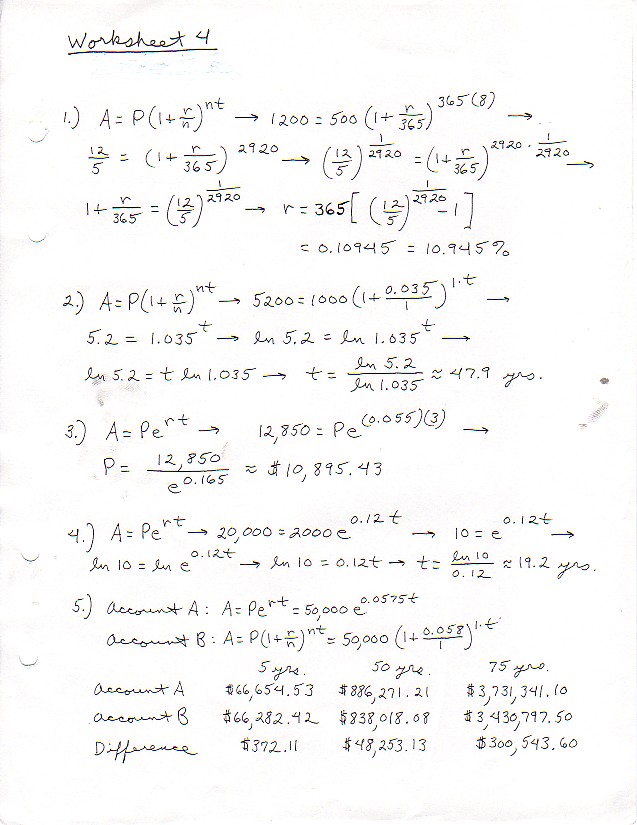 Worksheet 4
1.) A = P(1 + r/n)^nt → 1200 = 500 (1 + r/365)^365(8) →
12/5 = (1 + r/365)^2920 → (12/5)^1/2920 = (1 + r/365)^2920 · 1/2920 →
1 + r/365 = (12/5)^1/2920 → r = 365[(12/5)^1/2920 - 1]
= 0.10945 = 10.945%
2.) A = P(1 + r/n)^nt → 5200 = 1000 (1 + 0.035/1)^1·t →
5.2 = 1.035^t → ln 5.2 = ln 1.035^t →
ln 5.2 = t ln 1.035 → t = ln 5.2/ln 1.035 ≈ 47.9 yrs.
3.) A = Pe^rt → 12,850 = Pe^(0.055)(3) →
P = 12,850/e^0.165 ≈ $10,895.43
4.) A = Pe^rt → 20,000 = 2000 e^0.12t → 10 = e^0.12t →
ln 10 = ln e^0.12t → ln 10 = 0.12t → t = ln 10/0.12 ≈ 19.2 yrs.
5.) Account A: A = Pe^rt = 50,000 e^0.0575t
Account B: A = P(1 + r/n)^nt = 50,000 (1 + 0.058/1)^1·t
5 yrs. 50 yrs. 75 yrs.
Account A $66,654.53 $886,271.21 $3,731,341.10
Account B $66,282.42 $838,018.08 $3,430,797.50
Difference $372.11 $48,253.13 $300,543.60